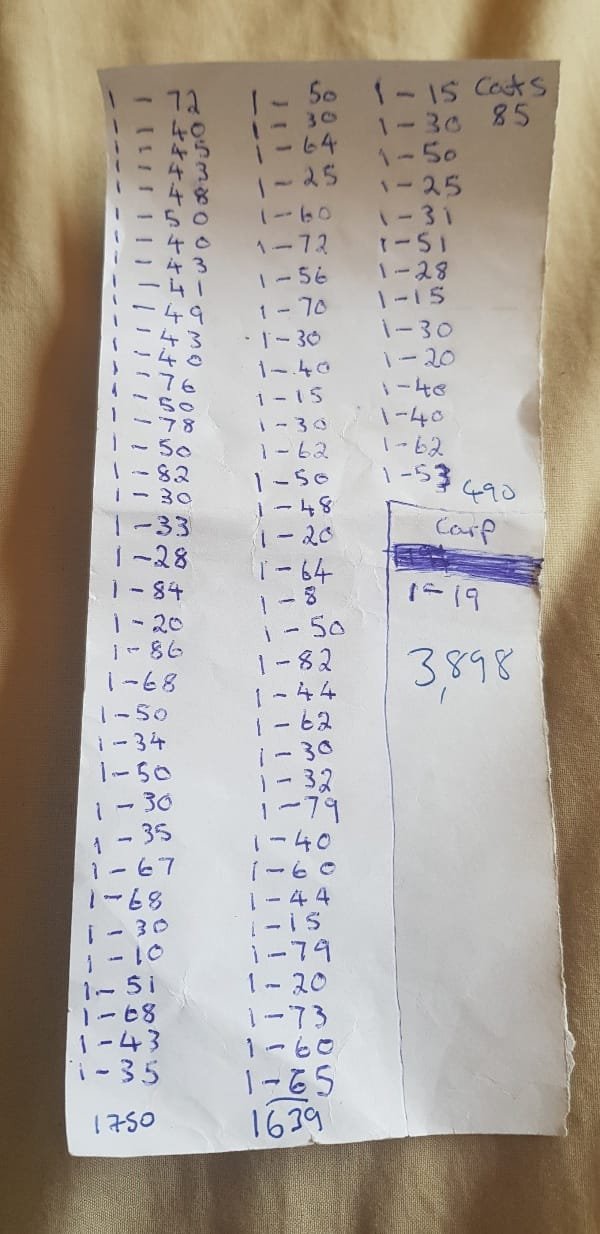 1 - 72
1 - 40
1 - 45
1 - 43
1 - 48
1 - 50
1 - 40
1 - 43
1 - 41
1 - 49
1 - 43
1 - 40
1 - 76
1 - 50
1 - 78
1 - 50
1 - 82
1 - 30
1 - 33
1 - 28
1 - 84
1 - 20
1 - 86
1 - 68
1 - 50
1 - 34
1 - 50
1 - 30
1 - 35
1 - 67
1 - 68
1 - 30
1 - 10
1 - 51
1 - 68
1 - 43
1 - 35
1750
1 - 50
1 - 30
1 - 64
1 - 25
1 - 60
1 - 72
1 - 56
1 - 70
1 - 30
1 - 40
1 - 15
1 - 30
1 - 62
1 - 50
1 - 48
1 - 20
1 - 64
1 - 8
1 - 50
1 - 82
1 - 44
1 - 62
1 - 30
1 - 32
1 - 79
1 - 40
1 - 60
1 - 44
1 - 15
1 - 79
1 - 20
1 - 73
1 - 60
1 - 65
1639
Cats
85
1 - 15
1 - 30
1 - 50
1 - 25
1 - 31
1 - 51
1 - 28
1 - 15
1 - 30
1 - 20
1 - 40
1 - 40
1 - 62
1 - 53
490
Carp
1 - 19
3,898